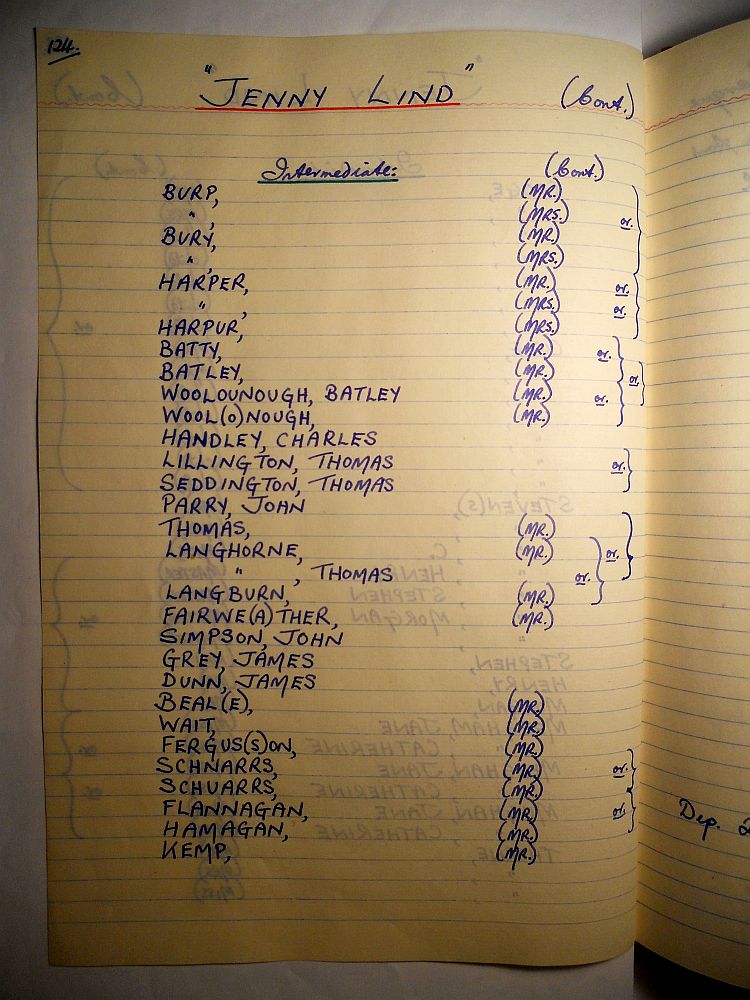 124.
"JENNY LIND" (Cont.)
Intermediate: (Cont.)
BURP, (MR.)
" , (MRS.) or.
BURY, (MR.)
" , (MRS.)
HARPER, (MR.) or.
" , (MRS.) or.
HARPUR, (MRS.)
BATTY, (MR.) or.
BATLEY, (MR.) or.
WOOLOUNOUGH, BATLEY (MR.) or.
WOOL(O)NOUGH, (MR.)
HANDLEY, CHARLES
LILLINGTON, THOMAS or.
SEDDINGTON, THOMAS
PARRY, JOHN
THOMAS, (MR.)
LANGHORNE, (MR.) or.
" , THOMAS or.
LANGBURN, (MR.)
FAIRWE(A)THER, (MR.)
SIMPSON, JOHN
GREY, JAMES
DUNN, JAMES
BEAL(E), (MR.)
WAIT, (MR.)
FERGUS(S)ON, (MR.)
SCHNARRS, (MR.) or.
SCHUARRS, (MR.)
FLANNAGAN, (MR.) or.
HAMAGAN, (MR.)
KEMP, (MR.)
Dep.